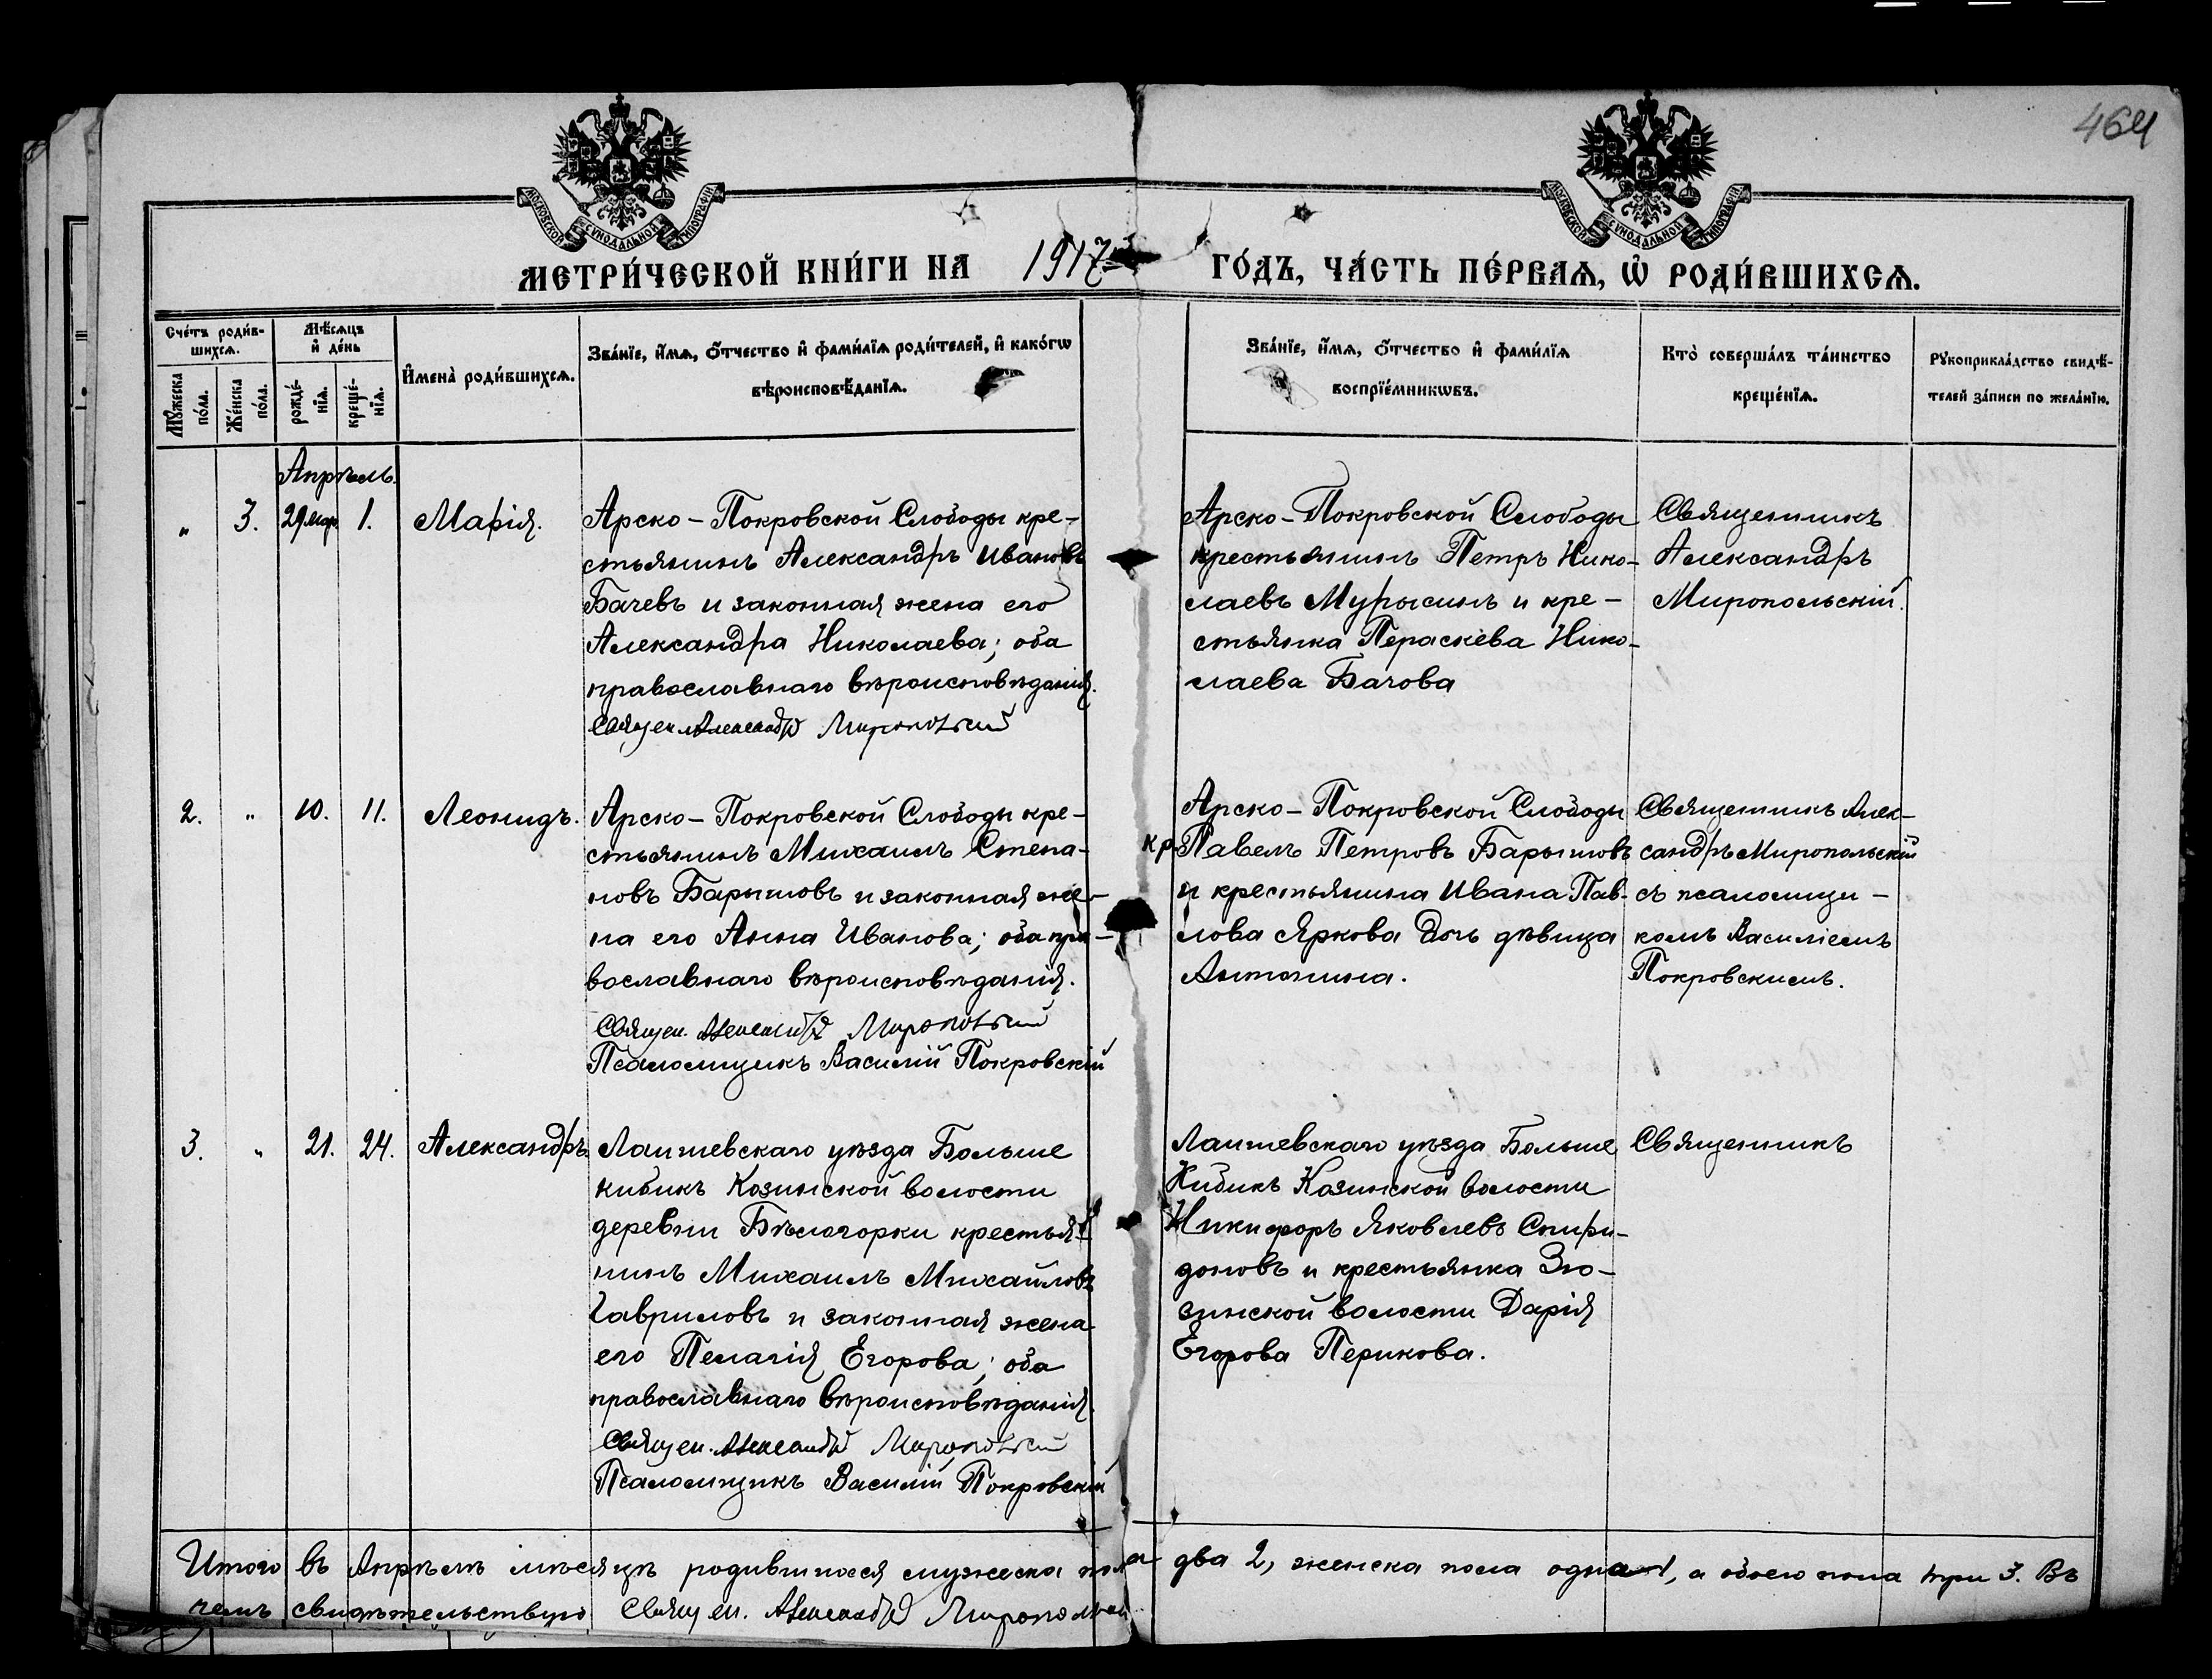 464
МОСКОВСКОЙ СУНОДАЛЬНОЙ ТИПОГРАФІИ
МОСКОВСКОЙ СУНОДАЛЬНОЙ ТИПОГРАФІИ
МЕТРИ́ЧЕСКОЙ КНИ́ГИ НА 1917 ГО́ДЪ, ЧА́СТЬ ПЕ́РВАѦ, Ѡ҆ РОДИ́ВШИХСѦ.
Сче́тъ роди́в-
шихсѧ.
Мꙋжеска
по́ла.
Же́нска
по́ла.
Мѣ́сѧцъ
и҆ де́нь
рожде́-
нїѧ.
креще́-
нїѧ.
И҆мена̀ роди́вшихсѧ.
Зва́нїе, и҆́мѧ, ѻ҆́тчество и҆ фами́лїѧ роди́телей, и҆ како́гѡ
вѣроисповѣ́данїѧ.
Зва́нїе, и҆́мѧ, ѻ҆́тчество и҆ фами́лїѧ
воспрїе́мникѡвъ.
Кто̀ соверша́лъ та́инство
креще́нїѧ.
Рꙋкоприкла́дство свидѣ́-
телей за́писи по жела́нїю.
Апрѣль.
" 3. 29 мар. 1. Марія.
Арско-Покровской Слободы кре-
стьянинъ Александръ Ивановъ
Бачевъ и законная жена его
Александра Николаева; оба
православнаго вѣроисповѣданія.
Священ. Александр Миропольский
Арско-Покровской Слободы
крестьянинъ Петръ Нико-
лаевъ Мурысинъ и кре-
стьянка Пераскева Нико-
лаева Бачова
Священникъ
Александръ
Миропольскій.
2. " 10. 11. Леонидъ.
Арско-Покровской Слободы кре-
стьянинъ Михаилъ Степа-
новъ Барышовъ и законная же-
на его Анна Иванова; оба пра-
вославнаго вѣроисповѣданія.
Священ. Александр Миропольский
Псаломщикъ Василій Покровскій
Арско-Покровской Слободы
кр. Павелъ Петровъ Барышовъ
и крестьянина Ивана Пав-
лова Яркова дочь дѣвица
Антонина.
Священникъ Алек-
сандръ Миропольскій
съ псаломщи-
комъ Василіемъ
Покровскимъ.
3. " 21. 24. Александръ
Лаишевскаго уѣзда Больше
кибикъ Козинской волости
деревни Бѣлогорки крестья-
нинъ Михаилъ Михайловъ
Гавриловъ и законная жена
его Пелагія Егорова; оба
православнаго вѣроисповѣданія.
Священ. Александр Миропольский
Псаломщикъ Василій Покровскій
Лаишевскаго уѣзда Больше
Кибикъ Козинской волости
Никифоръ Яковлевъ Спири-
доновъ и крестьянка Зю-
зинской волости Дарія
Егорова Перикова.
Священникъ
Итого въ Апрѣлѣ мѣсяцѣ родившихся мужеска пола два 2, женска пола одна 1, а обоего пола три 3. Въ
чемъ свидѣтельствую Священ. Александр Миропольский